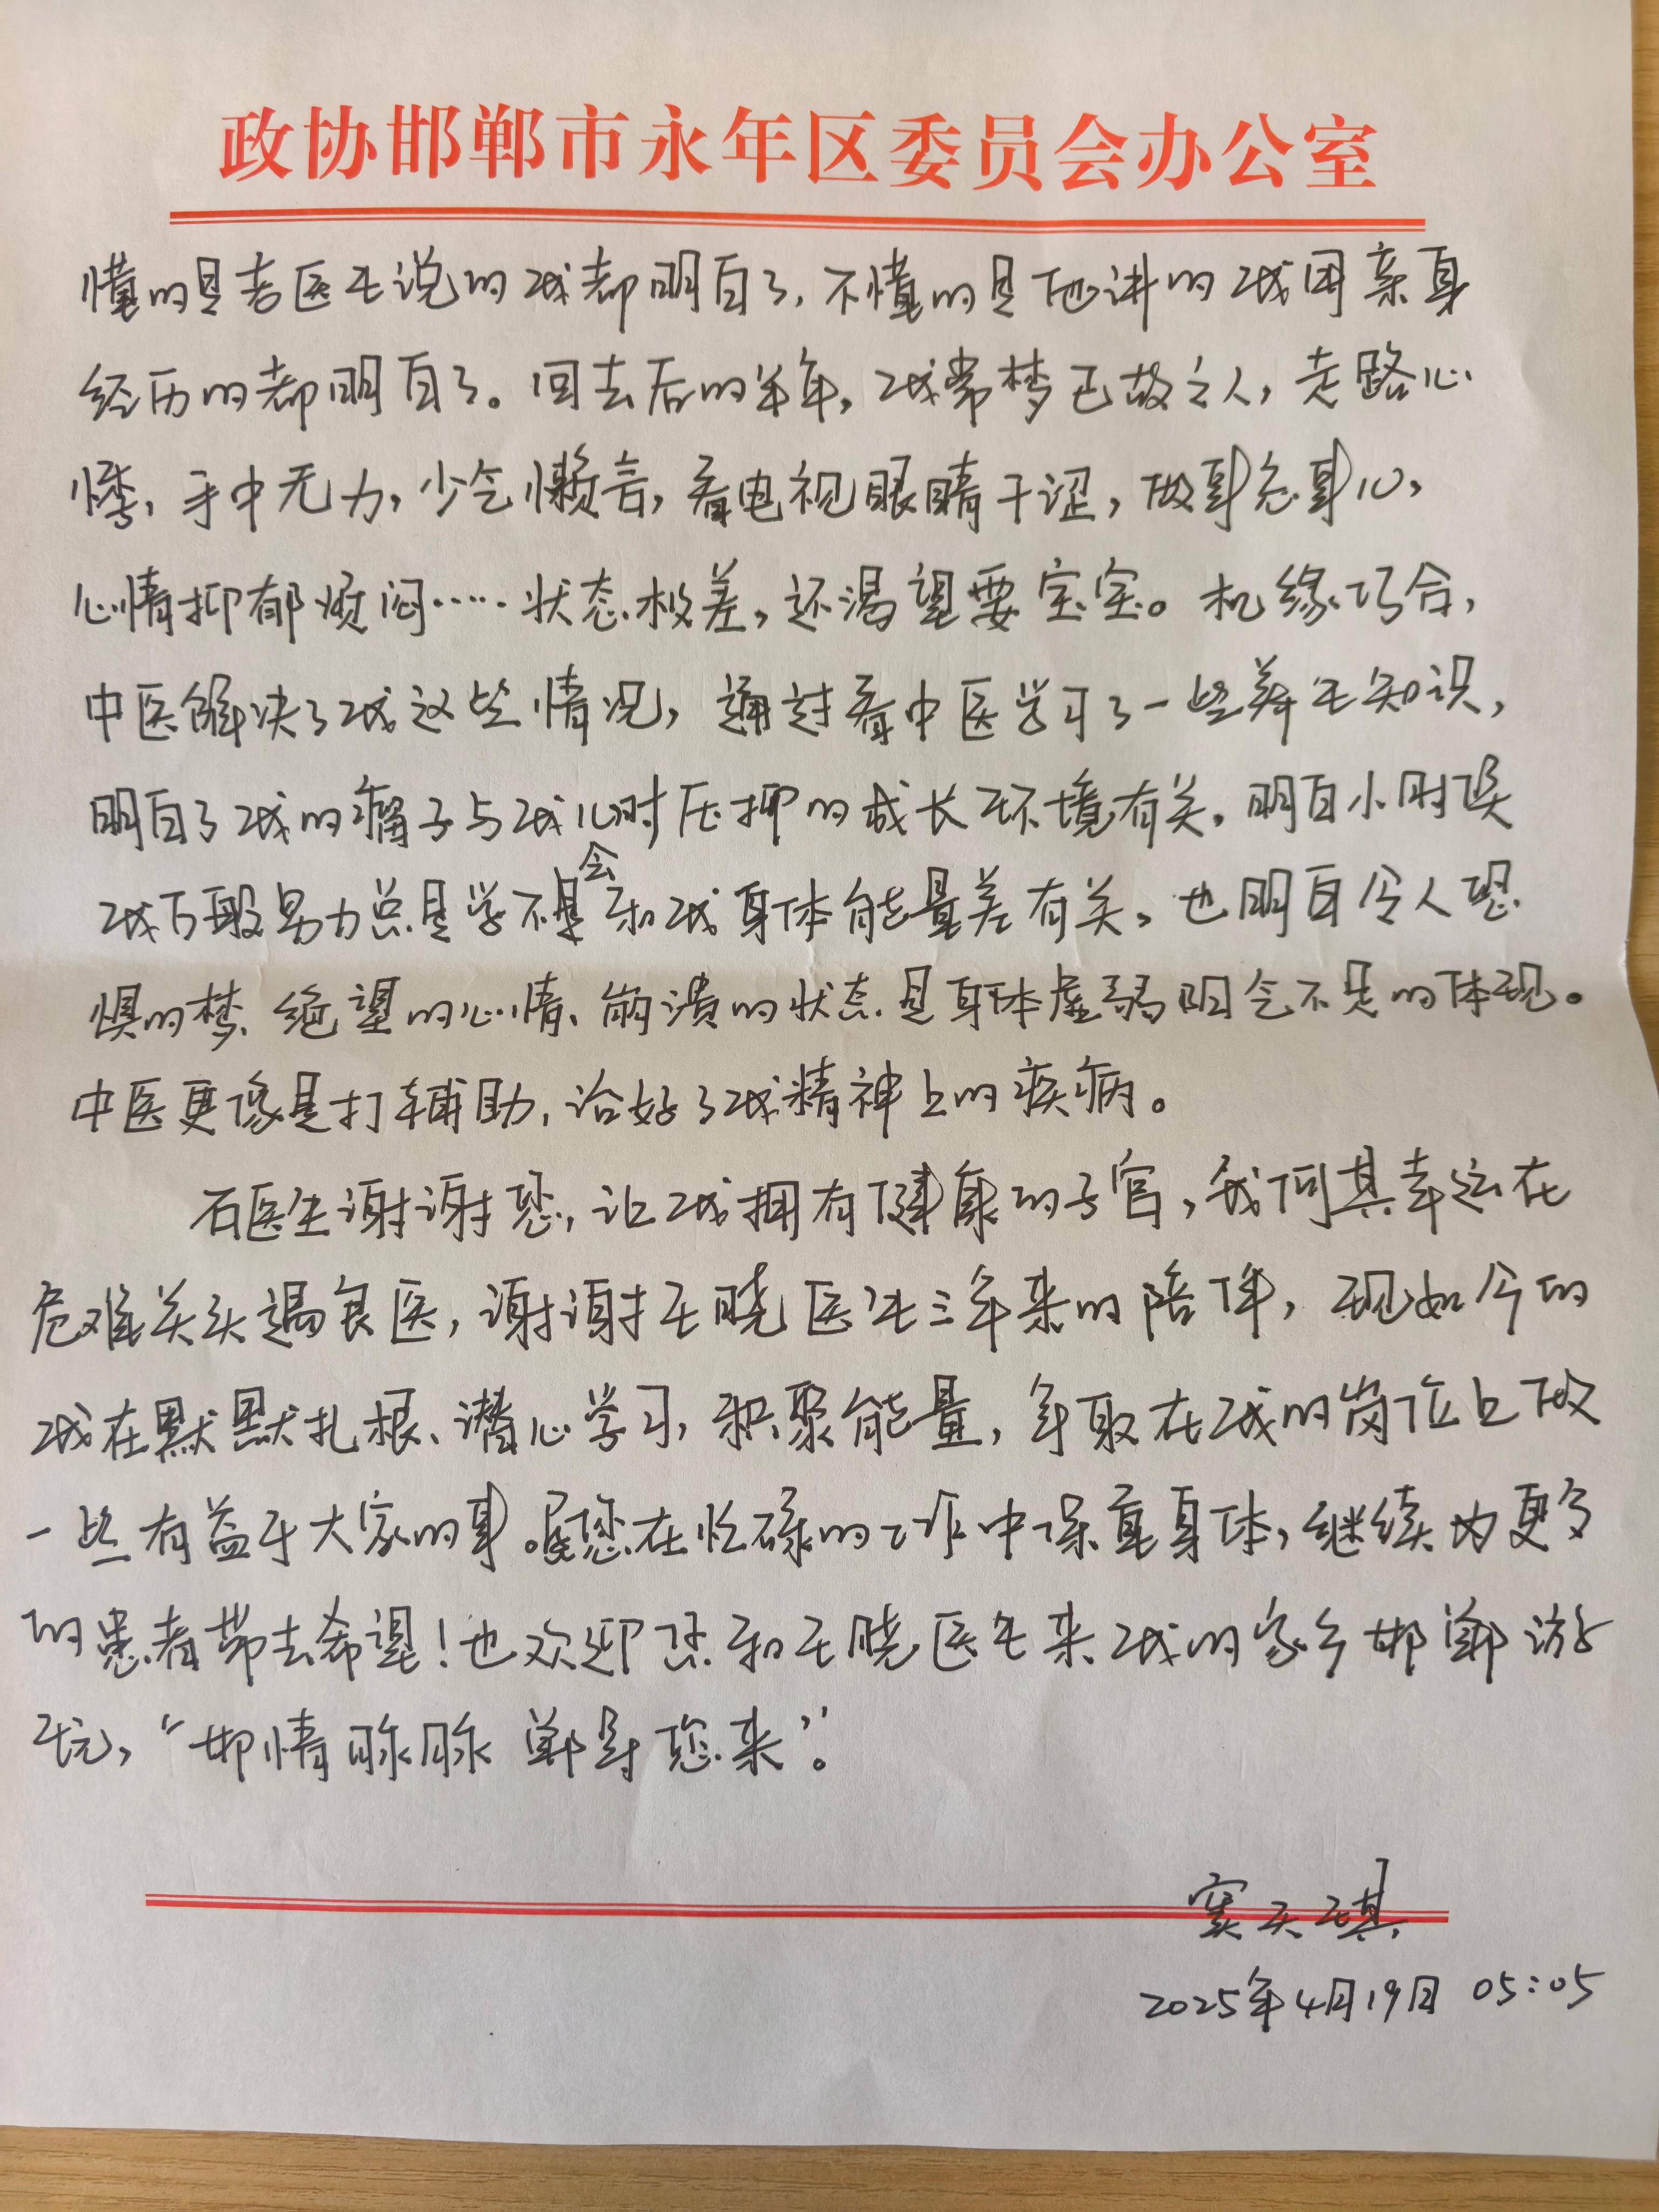 政协邯郸市永年区委员会办公室
懂的是吉医生说的我都明白了，不懂的是他讲的我因亲身
经历的都明白了。回去后的半年，我常梦已故之人，走路心
悸，手中无力，少气懒言，看电视眼睛干涩，做事忘事儿，
心情抑郁烦闷……状态极差，还渴望要宝宝。机缘巧合，
中医解决了我这些情况，通过看中医学习了一些养生知识，
明白了我的瘤子与我儿时压抑的成长环境有关，明白小时候
我万般努力总是学不会和我身体能量差有关，也明白令人恐
惧的梦、绝望的心情、崩溃的状态是身体虚弱阳气不足的体现。
中医更像是打辅助，治好了我精神上的疾病。
石医生谢谢您，让我拥有健康的子宫，我何其幸运在
危难关头遇良医，谢谢王晓医生三年来的陪伴，现如今的
我在默默扎根、潜心学习，积聚能量，争取在我的岗位上做
一些有益于大家的事。愿您在忙碌的工作中保重身体，继续为更多
的患者带去希望！也欢迎您和王晓医生来我的家乡邯郸游
玩，“邯情脉脉 郸等您来”。
窦天琪
2025年4月19日 05:05